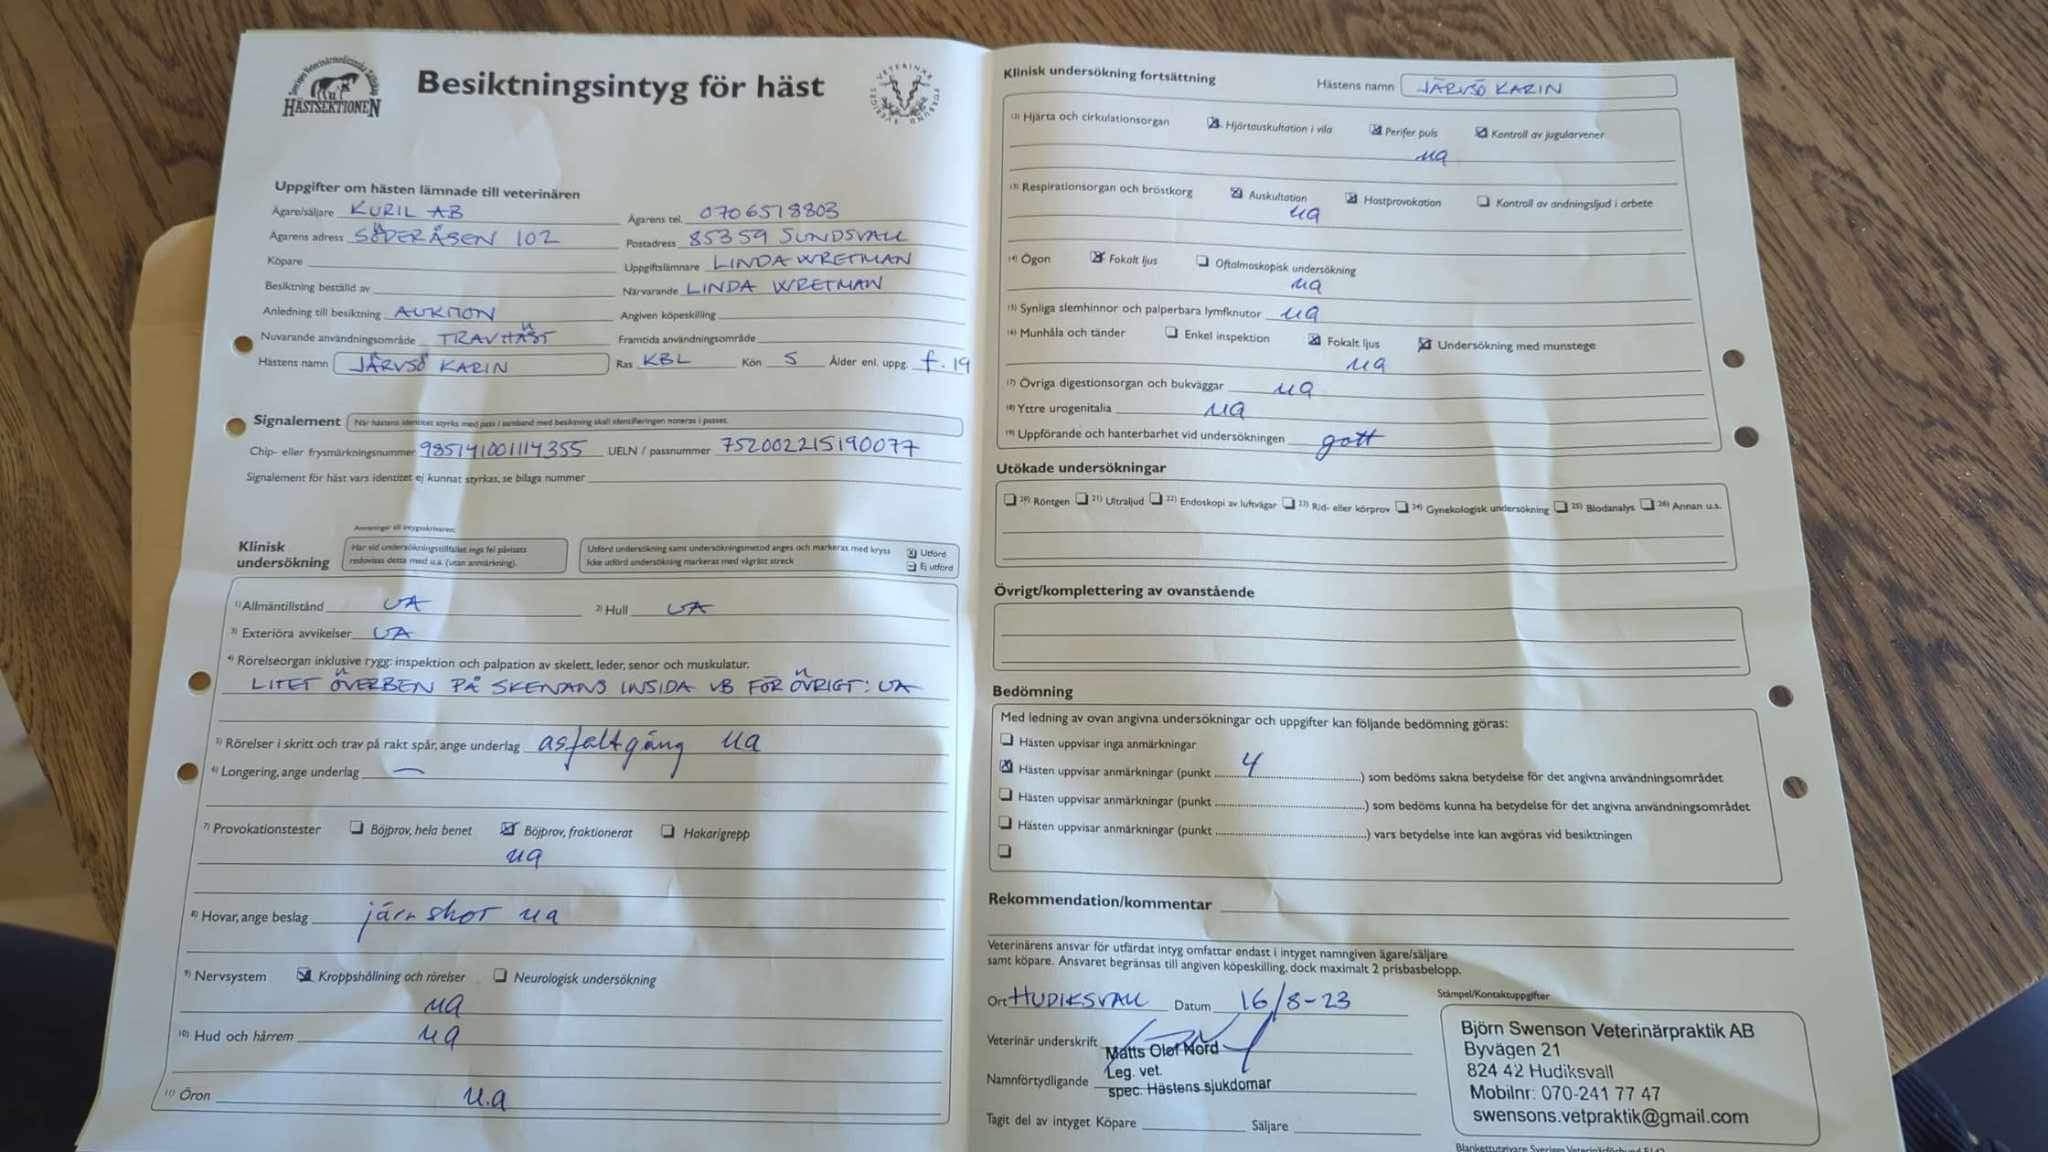 Sveriges Veterinärmedicinska Sällskap
HÄSTSEKTIONEN
Besiktningsintyg för häst
SVERIGES VETERINÄRFÖRBUND
Uppgifter om hästen lämnade till veterinären
Ägare/säljare KURIL AB Ägarens tel. 0706518803
Ägarens adress SÖDERÅSEN 102 Postadress 85359 SUNDSVALL
Köpare Uppgiftslämnare LINDA WRETMAN
Besiktning beställd av Närvarande LINDA WRETMAN
Anledning till besiktning AUKTION Angiven köpeskilling
Nuvarande användningsområde TRAVHÄST Framtida användningsområde
Hästens namn JÄRVSÖ KARIN Ras KBL Kön S Ålder enl. uppg. f. 19
Signalement När hästens identitet styrks med pass i samband med besiktning skall identifieringen noteras i passet.
Chip- eller frysmärkningsnummer 985141001114355 UELN / passnummer 752002215190077
Signalement för häst vars identitet ej kunnat styrkas, se bilaga nummer
Anvisningar till intygsskrivaren:
Klinisk undersökning
Har vid undersökningstillfället inga fel påvisats redovisas detta med u.a. (utan anmärkning).
Utförd undersökning samt undersökningsmetod anges och markeras med kryss Utförd
Icke utförd undersökning markeras med vågrätt streck Ej utförd
1) Allmäntillstånd UA 2) Hull UA
3) Exteriöra avvikelser UA
4) Rörelseorgan inklusive rygg: inspektion och palpation av skelett, leder, senor och muskulatur.
LITET ÖVERBEN PÅ SKENANS INSIDA VB FÖR ÖVRIGT: UA
5) Rörelser i skritt och trav på rakt spår, ange underlag asfaltgång ua
6) Longering, ange underlag —
7) Provokationstester Böjprov, hela benet Böjprov, fraktionerat Hakarigrepp
ua
8) Hovar, ange beslag järnskor ua
9) Nervsystem Kroppshållning och rörelser Neurologisk undersökning
ua
10) Hud och hårrem ua
11) Öron u.a
Klinisk undersökning fortsättning Hästens namn JÄRVSÖ KARIN
12) Hjärta och cirkulationsorgan Hjärtauskultation i vila Perifer puls Kontroll av jugularvener
ua
13) Respirationsorgan och bröstkorg Auskultation Hostprovokation Kontroll av andningsljud i arbete
ua
14) Ögon Fokalt ljus Oftalmoskopisk undersökning
ua
15) Synliga slemhinnor och palperbara lymfknutor ua
16) Munhåla och tänder Enkel inspektion Fokalt ljus Undersökning med munstege
ua
17) Övriga digestionsorgan och bukväggar ua
18) Yttre urogenitalia ua
19) Uppförande och hanterbarhet vid undersökningen gott
Utökade undersökningar
20) Röntgen 21) Ultraljud 22) Endoskopi av luftvägar 23) Rid- eller körprov 24) Gynekologisk undersökning 25) Blodanalys 26) Annan u.s.
Övrigt/komplettering av ovanstående
Bedömning
Med ledning av ovan angivna undersökningar och uppgifter kan följande bedömning göras:
Hästen uppvisar inga anmärkningar
Hästen uppvisar anmärkningar (punkt 4) som bedöms sakna betydelse för det angivna användningsområdet
Hästen uppvisar anmärkningar (punkt ) som bedöms kunna ha betydelse för det angivna användningsområdet
Hästen uppvisar anmärkningar (punkt ) vars betydelse inte kan avgöras vid besiktningen
Rekommendation/kommentar
Veterinärens ansvar för utfärdat intyg omfattar endast i intyget namngiven ägare/säljare
samt köpare. Ansvaret begränsas till angiven köpeskilling, dock maximalt 2 prisbasbelopp.
Ort HUDIKSVALL Datum 16/8-23
Veterinär underskrift
Matts Olof Nord
Leg. vet.
Namnförtydligande spec. Hästens sjukdomar
Tagit del av intyget Köpare Säljare
Stämpel/Kontaktuppgifter
Björn Swenson Veterinärpraktik AB
Byvägen 21
824 42 Hudiksvall
Mobilnr: 070-241 77 47
swensons.vetpraktik@gmail.com
Blankettutgivare Sveriges Veterinärförbund